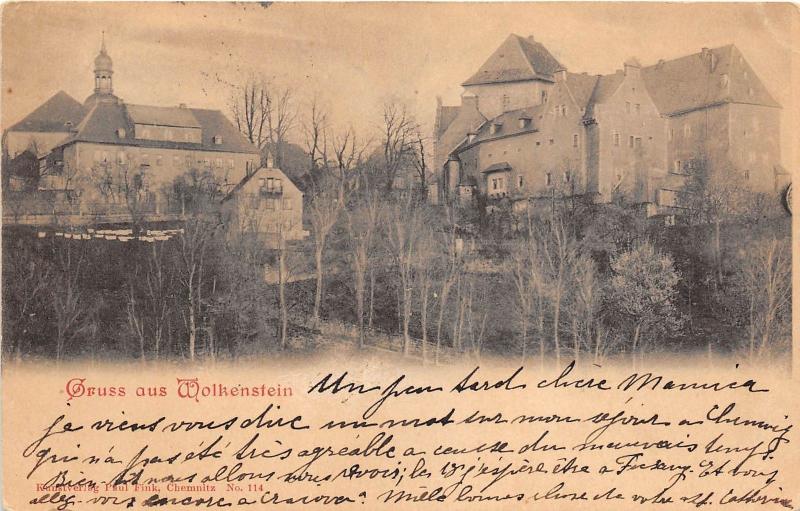 Gruss aus Wolkenstein
Un peu tard, chère Mamica
je viens vous dire un mot sur mon séjour a Chemnig
qui n'a pas été très agréable a cause du mauvais temps.
Bien-tôt nous allons nous revoir; le 18 j'espère être a Et vous
Kunstverlag Paul Fink, Chemnitz No. 114
allez-vous encore a Cracovie? Mille bonnes chose de votre Catherine